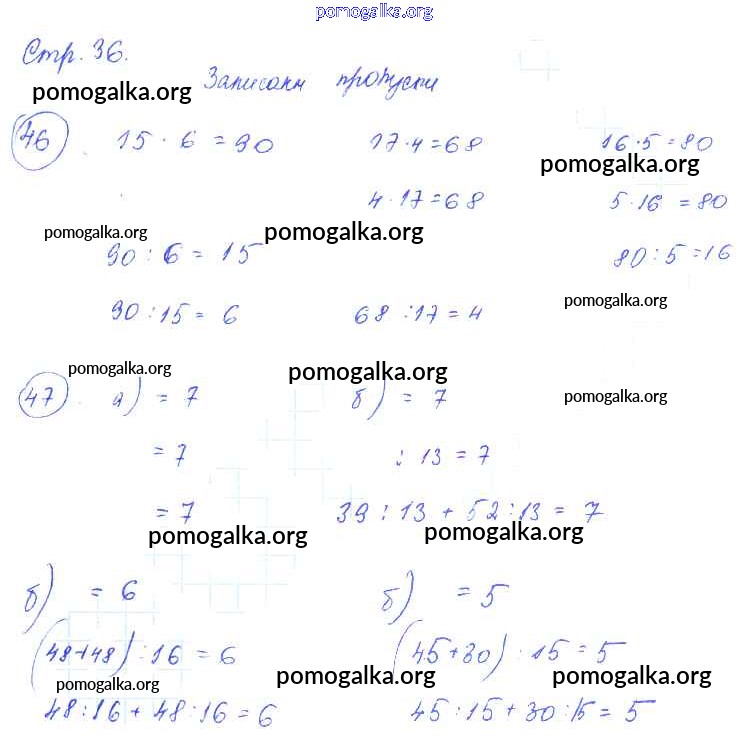 pomogalka.org
Стр. 36.
Записаны пропуски
pomogalka.org
46 15 · 6 = 90 17·4=68 16·5=80
pomogalka.org
4·17=68 5·16=80
pomogalka.org pomogalka.org
90:6=15 80:5=16
pomogalka.org
90:15=6 68:17=4
pomogalka.org pomogalka.org
47. а) = 7 б) = 7
pomogalka.org
= 7 : 13 = 7
= 7 39:13 + 52:13 = 7
pomogalka.org pomogalka.org
б) = 6 б) = 5
(48+48):16=6 (45+30):15=5
pomogalka.org pomogalka.org pomogalka.org
48:16+48:16=6 45:15+30:15=5